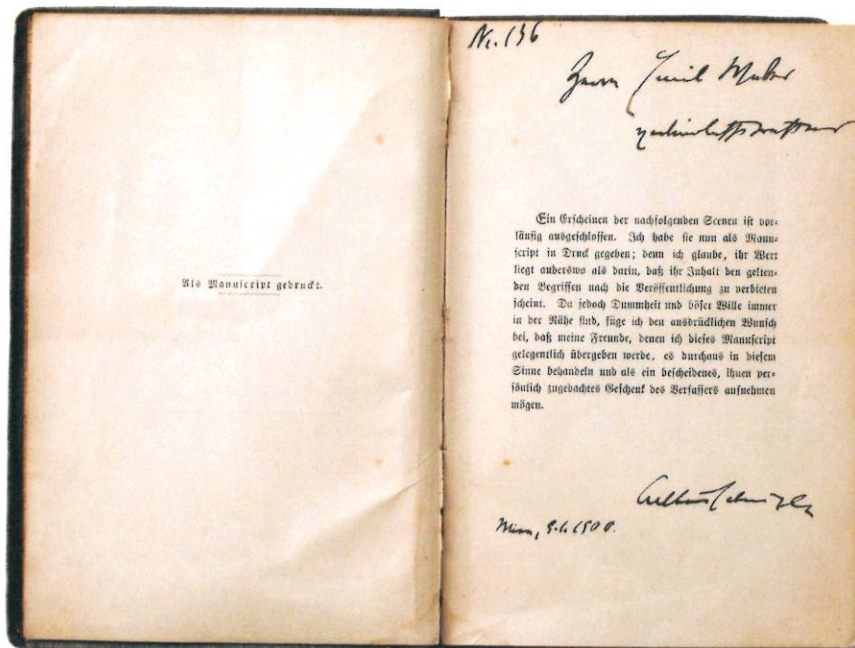 Als Manuscript gedruckt.
Nr. 136
Herrn Emil
Ein Erscheinen der nachfolgenden Scenen ist vor-
läufig ausgeschlossen. Ich habe sie nun als Manu-
script in Druck gegeben; denn ich glaube, ihr Wert
liegt anderswo als darin, daß ihr Inhalt den gelten-
den Begriffen nach die Veröffentlichung zu verbieten
scheint. Da jedoch Dummheit und böser Wille immer
in der Nähe sind, füge ich den ausdrücklichen Wunsch
bei, daß meine Freunde, denen ich dieses Manuscript
gelegentlich übergeben werde, es durchaus in diesem
Sinne behandeln und als ein bescheidenes, ihnen per-
sönlich zugedachtes Geschenk des Verfassers aufnehmen
mögen.
Arthur Schnitzler
Wien,